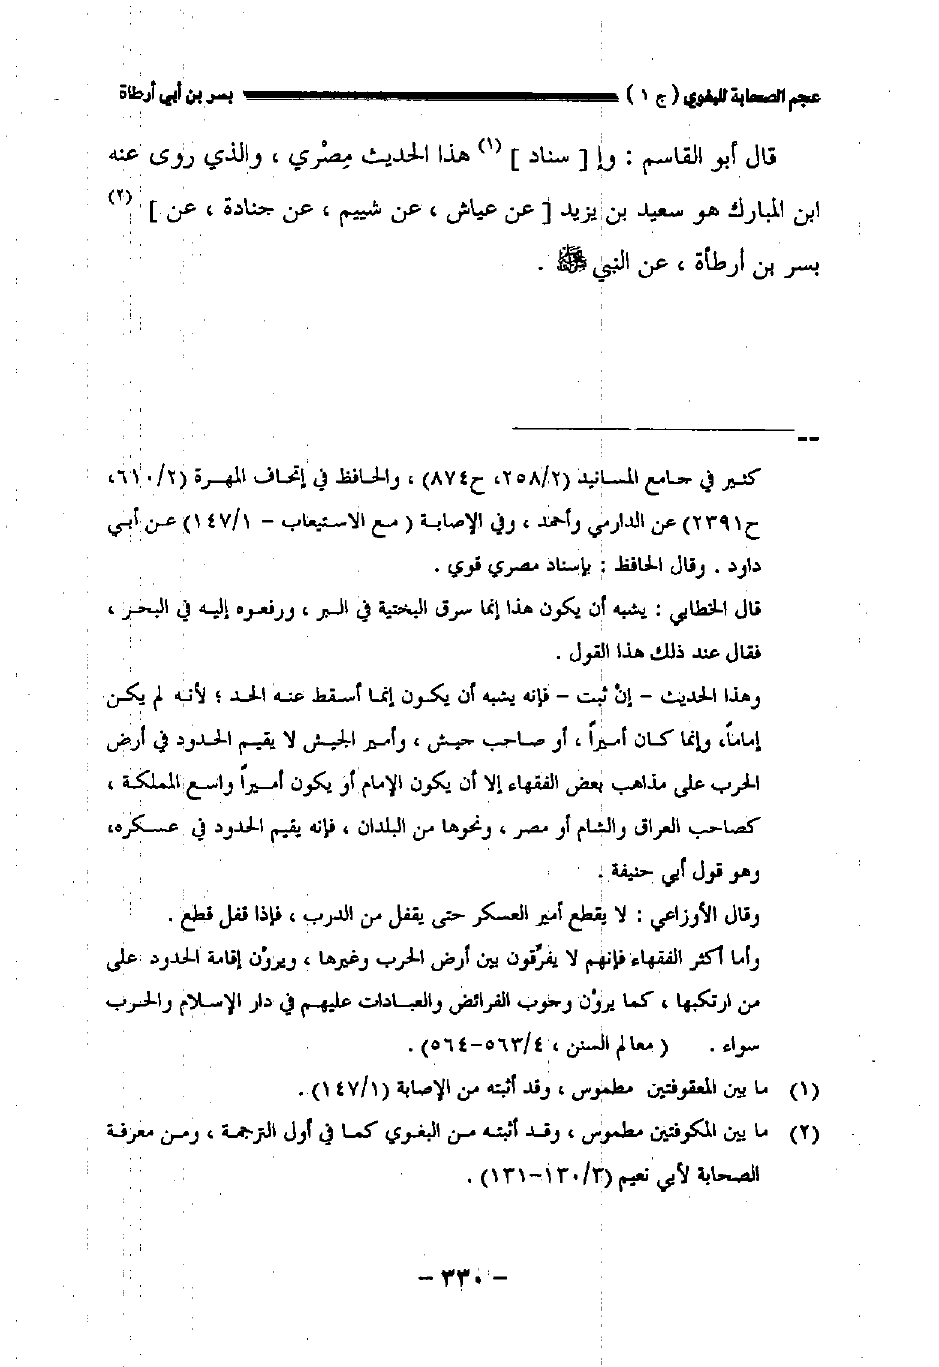 عجم الصحابة للبغوي ( ج ١ ) بسر بن أبي أرطاة
قال أبو القاسم : وإ [ سناد ] (١) هذا الحديث مِصْري ، والذي روى عنه
ابن المبارك هو سعيد بن يزيد [ عن عياش ، عن شييم ، عن جنادة ، عن ] (٢)
بسر بن أرطأة ، عن النبي ﷺ .
كثير في جامع المسانيد (٢٥٨/٢، ح٨٧٤) ، والحافظ في إتحاف المهرة (٦١٠/٢،
ح٢٣٩١) عن الدارمي وأحمد ، وفي الإصابة ( مع الاستيعاب - ١٤٧/١) عن أبي
داود . وقال الحافظ : بإسناد مصري قوي .
قال الخطابي : يشبه أن يكون هذا إنما سرق البختية في البر ، ورفعوه إليه في البحر ،
فقال عند ذلك هذا القول .
وهذا الحديث - إنْ ثبت - فإنه يشبه أن يكون إنما أسقط عنه الحد ؛ لأنه لم يكن
إماماً، وإنما كان أميراً ، أو صاحب جيش ، وأمير الجيش لا يقيم الحدود في أرض
الحرب على مذاهب بعض الفقهاء إلا أن يكون الإمام أو يكون أميراً واسع المملكة ،
كصاحب العراق والشام أو مصر ، ونحوها من البلدان ، فإنه يقيم الحدود في عسكره،
وهو قول أبي حنيفة .
وقال الأوزاعي : لا يقطع أمير العسكر حتى يقفل من الدرب ، فإذا قفل قطع .
وأما أكثر الفقهاء فإنهم لا يفرّقون بين أرض الحرب وغيرها ، ويروْن إقامة الحدود على
من ارتكبها ، كما يروْن وجوب الفرائض والعبادات عليهم في دار الإسلام والحرب
سواء . ( معالم السنن ، ٥٦٣/٤-٥٦٤) .
(١) ما بين المعقوفتين مطموس ، وقد أثبته من الإصابة (١٤٧/١) .
(٢) ما بين المكوفتين مطموس ، وقد أثبته من البغوي كما في أول الترجمة ، ومن معرفة
الصحابة لأبي نعيم (١٣٠/٣-١٣١) .
- ٣٣٠ -